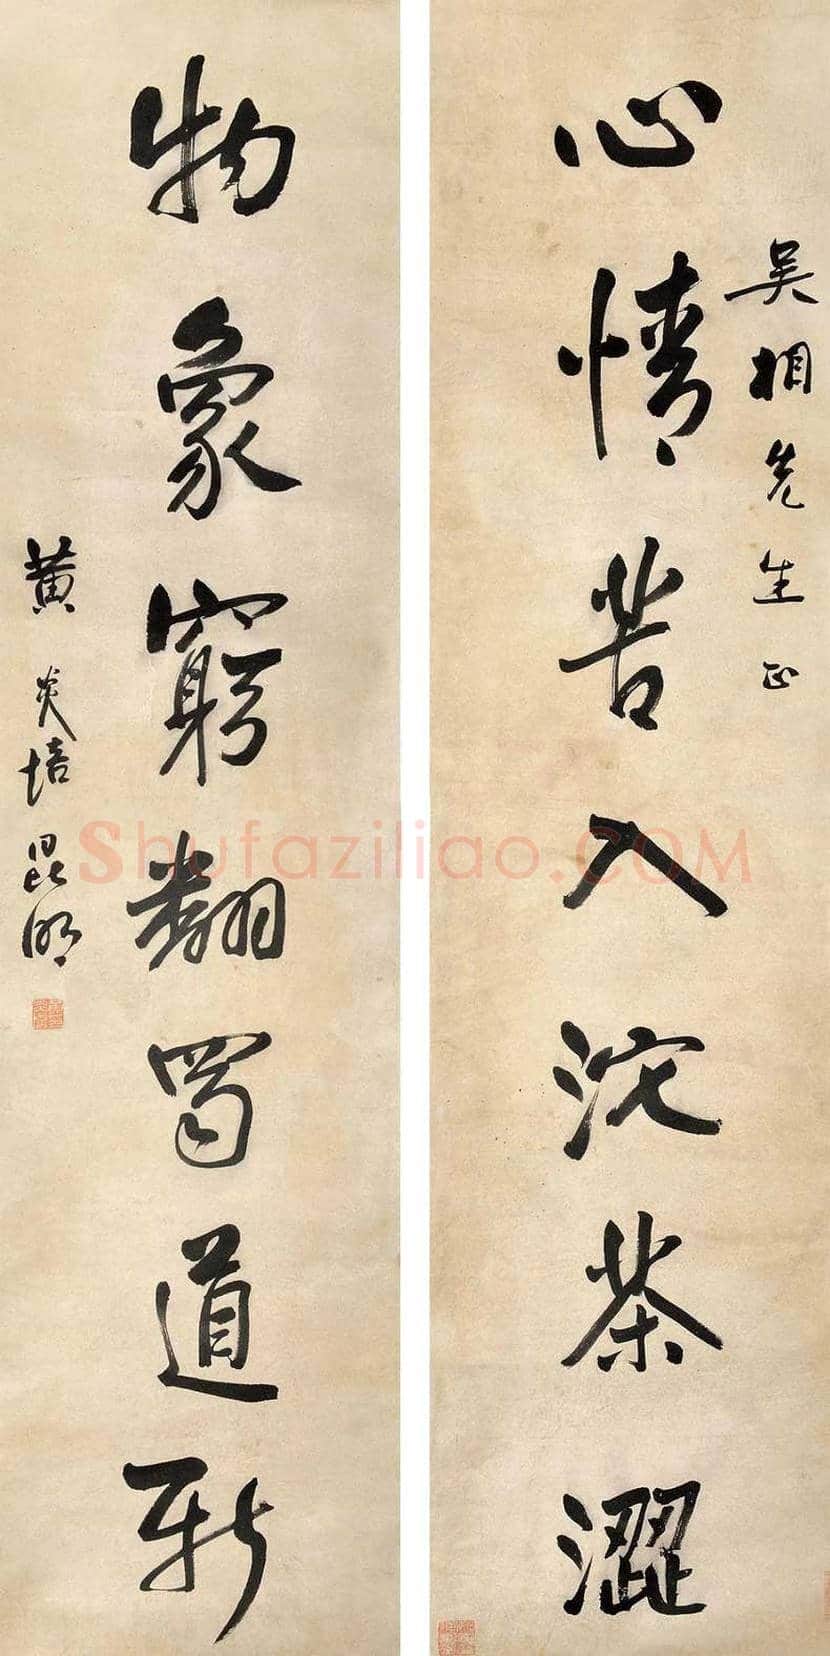 吴相先生正
心情苦入沱茶涩
物象穷翻蜀道新
黄炎培 昆明
Shufaziliao.COM